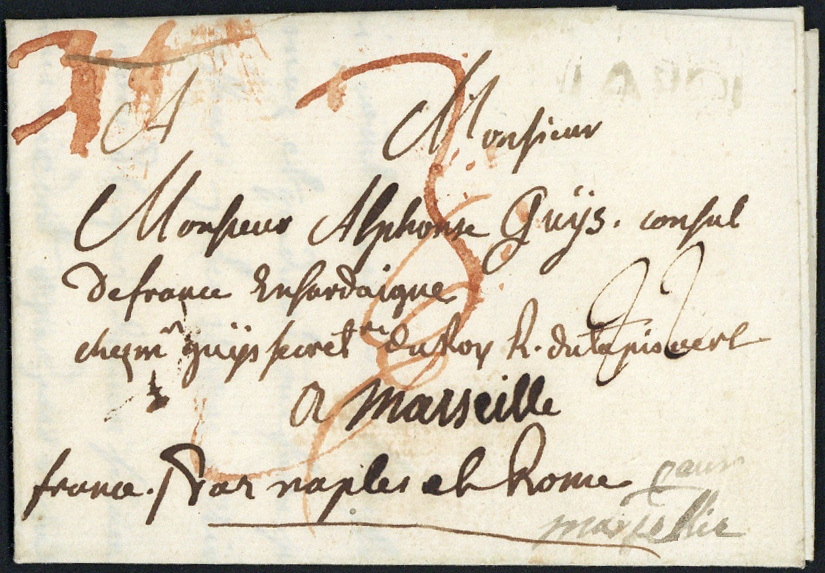 A Monsieur
Monsieur Alphonse Guÿs. consul
De france Ensardaigne
chez mr guÿs secretre du Roy R. du tapis vert
a Marseille
france. par naples et Rome
pour
marseille